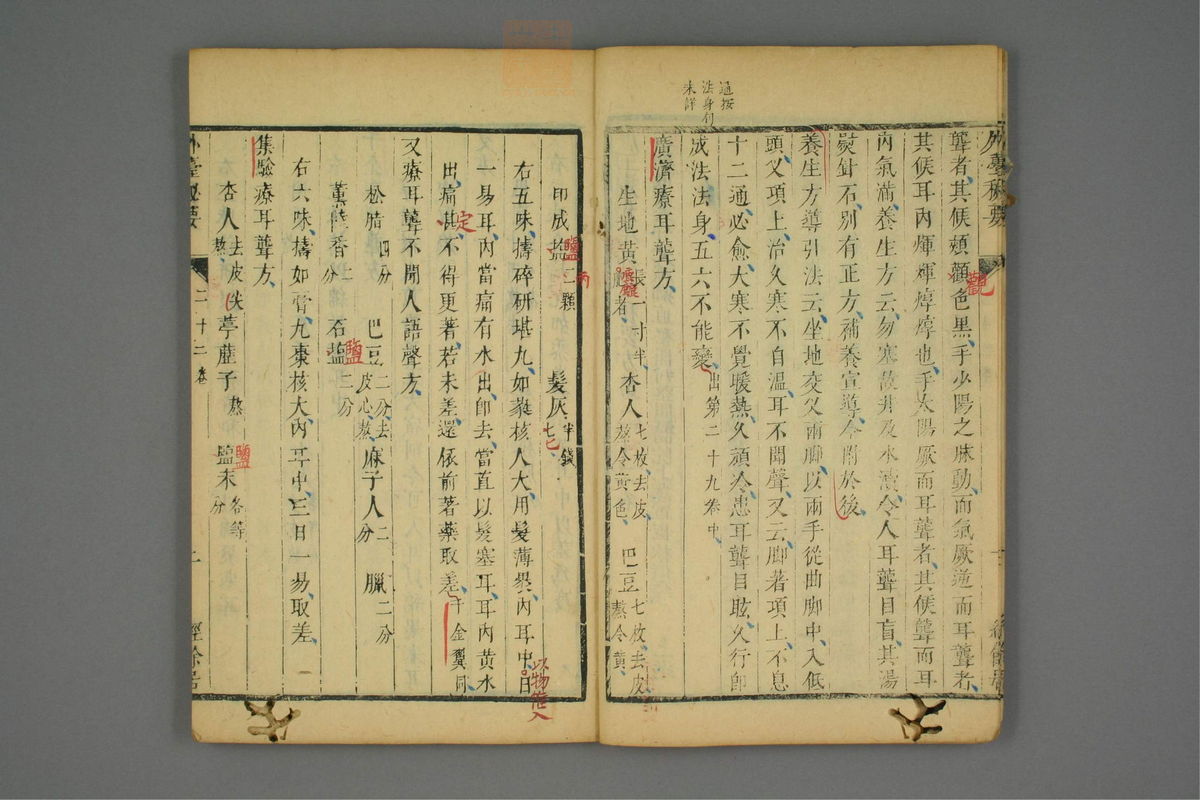 外臺秘要
聾者其候頰顴色黑手少陽之脉動而氣厥逆而耳聾者
其候耳內煇煇焞焞也手太陽厥而耳聾者其候聾而耳
內氣滿養生方云勿塞故井及水瀆令人耳聾目盲其湯
熨針石別有正方補養宣導今附於後
養生方導引法云坐地交叉兩脚以兩手從曲脚中入低
頭叉項上治久寒不自溫耳不聞聲又云脚著項上不息
十二通必愈大寒不覺暖熱久頑冷患耳聾目眩久行即
成法法身五六不能變出第二十九卷中
通按
法身句
未詳
廣濟療耳聾方
生地黃長一寸半 杏人七枚去皮熬令黃色 巴豆七枚去皮熬令黃
印成鹽二顆 髮灰半錢
右五味擣碎研堪丸如棗核人大用髮薄褁內耳中日
一易耳內當痛有水出即去當直以髮塞耳耳內黃水
出痛甚不得更著若未差還依前著藥取差千金翼同
又療耳聾不聞人語聲方
松脂四分 巴豆二分去皮心熬 麻子人二分 臘二分
薰陸香二分 石鹽二分
右六味擣如膏丸棗核大內耳中三日一易取差
集驗療耳聾方
杏人去皮熬 葶藶子熬 鹽末各等分
外臺秘要
二十二卷
顴
鹽
兩
七
定
鹽
鹽
以物塞入